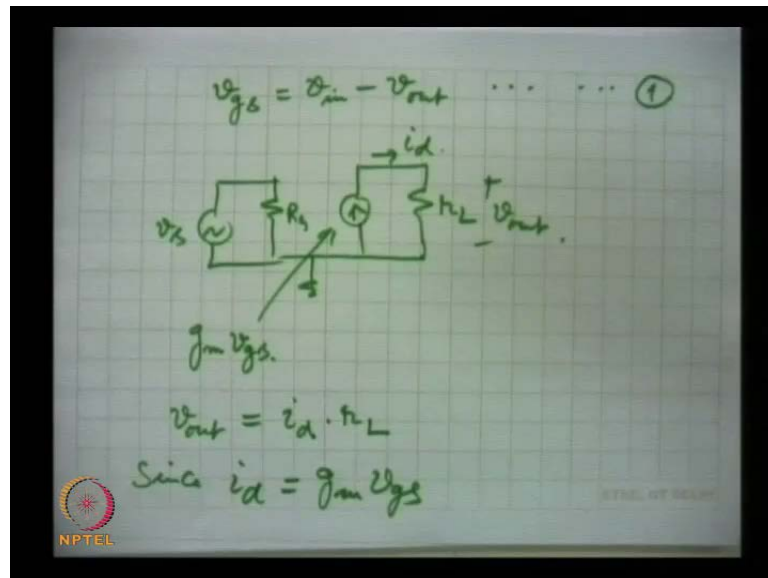 v_gs = v_in − v_out ... ... ①
→ i_d.
v_s R_G r_L + v_out. −
g_m v_gs.
v_out = i_d . r_L
Since i_d = g_m v_gs
NPTEL